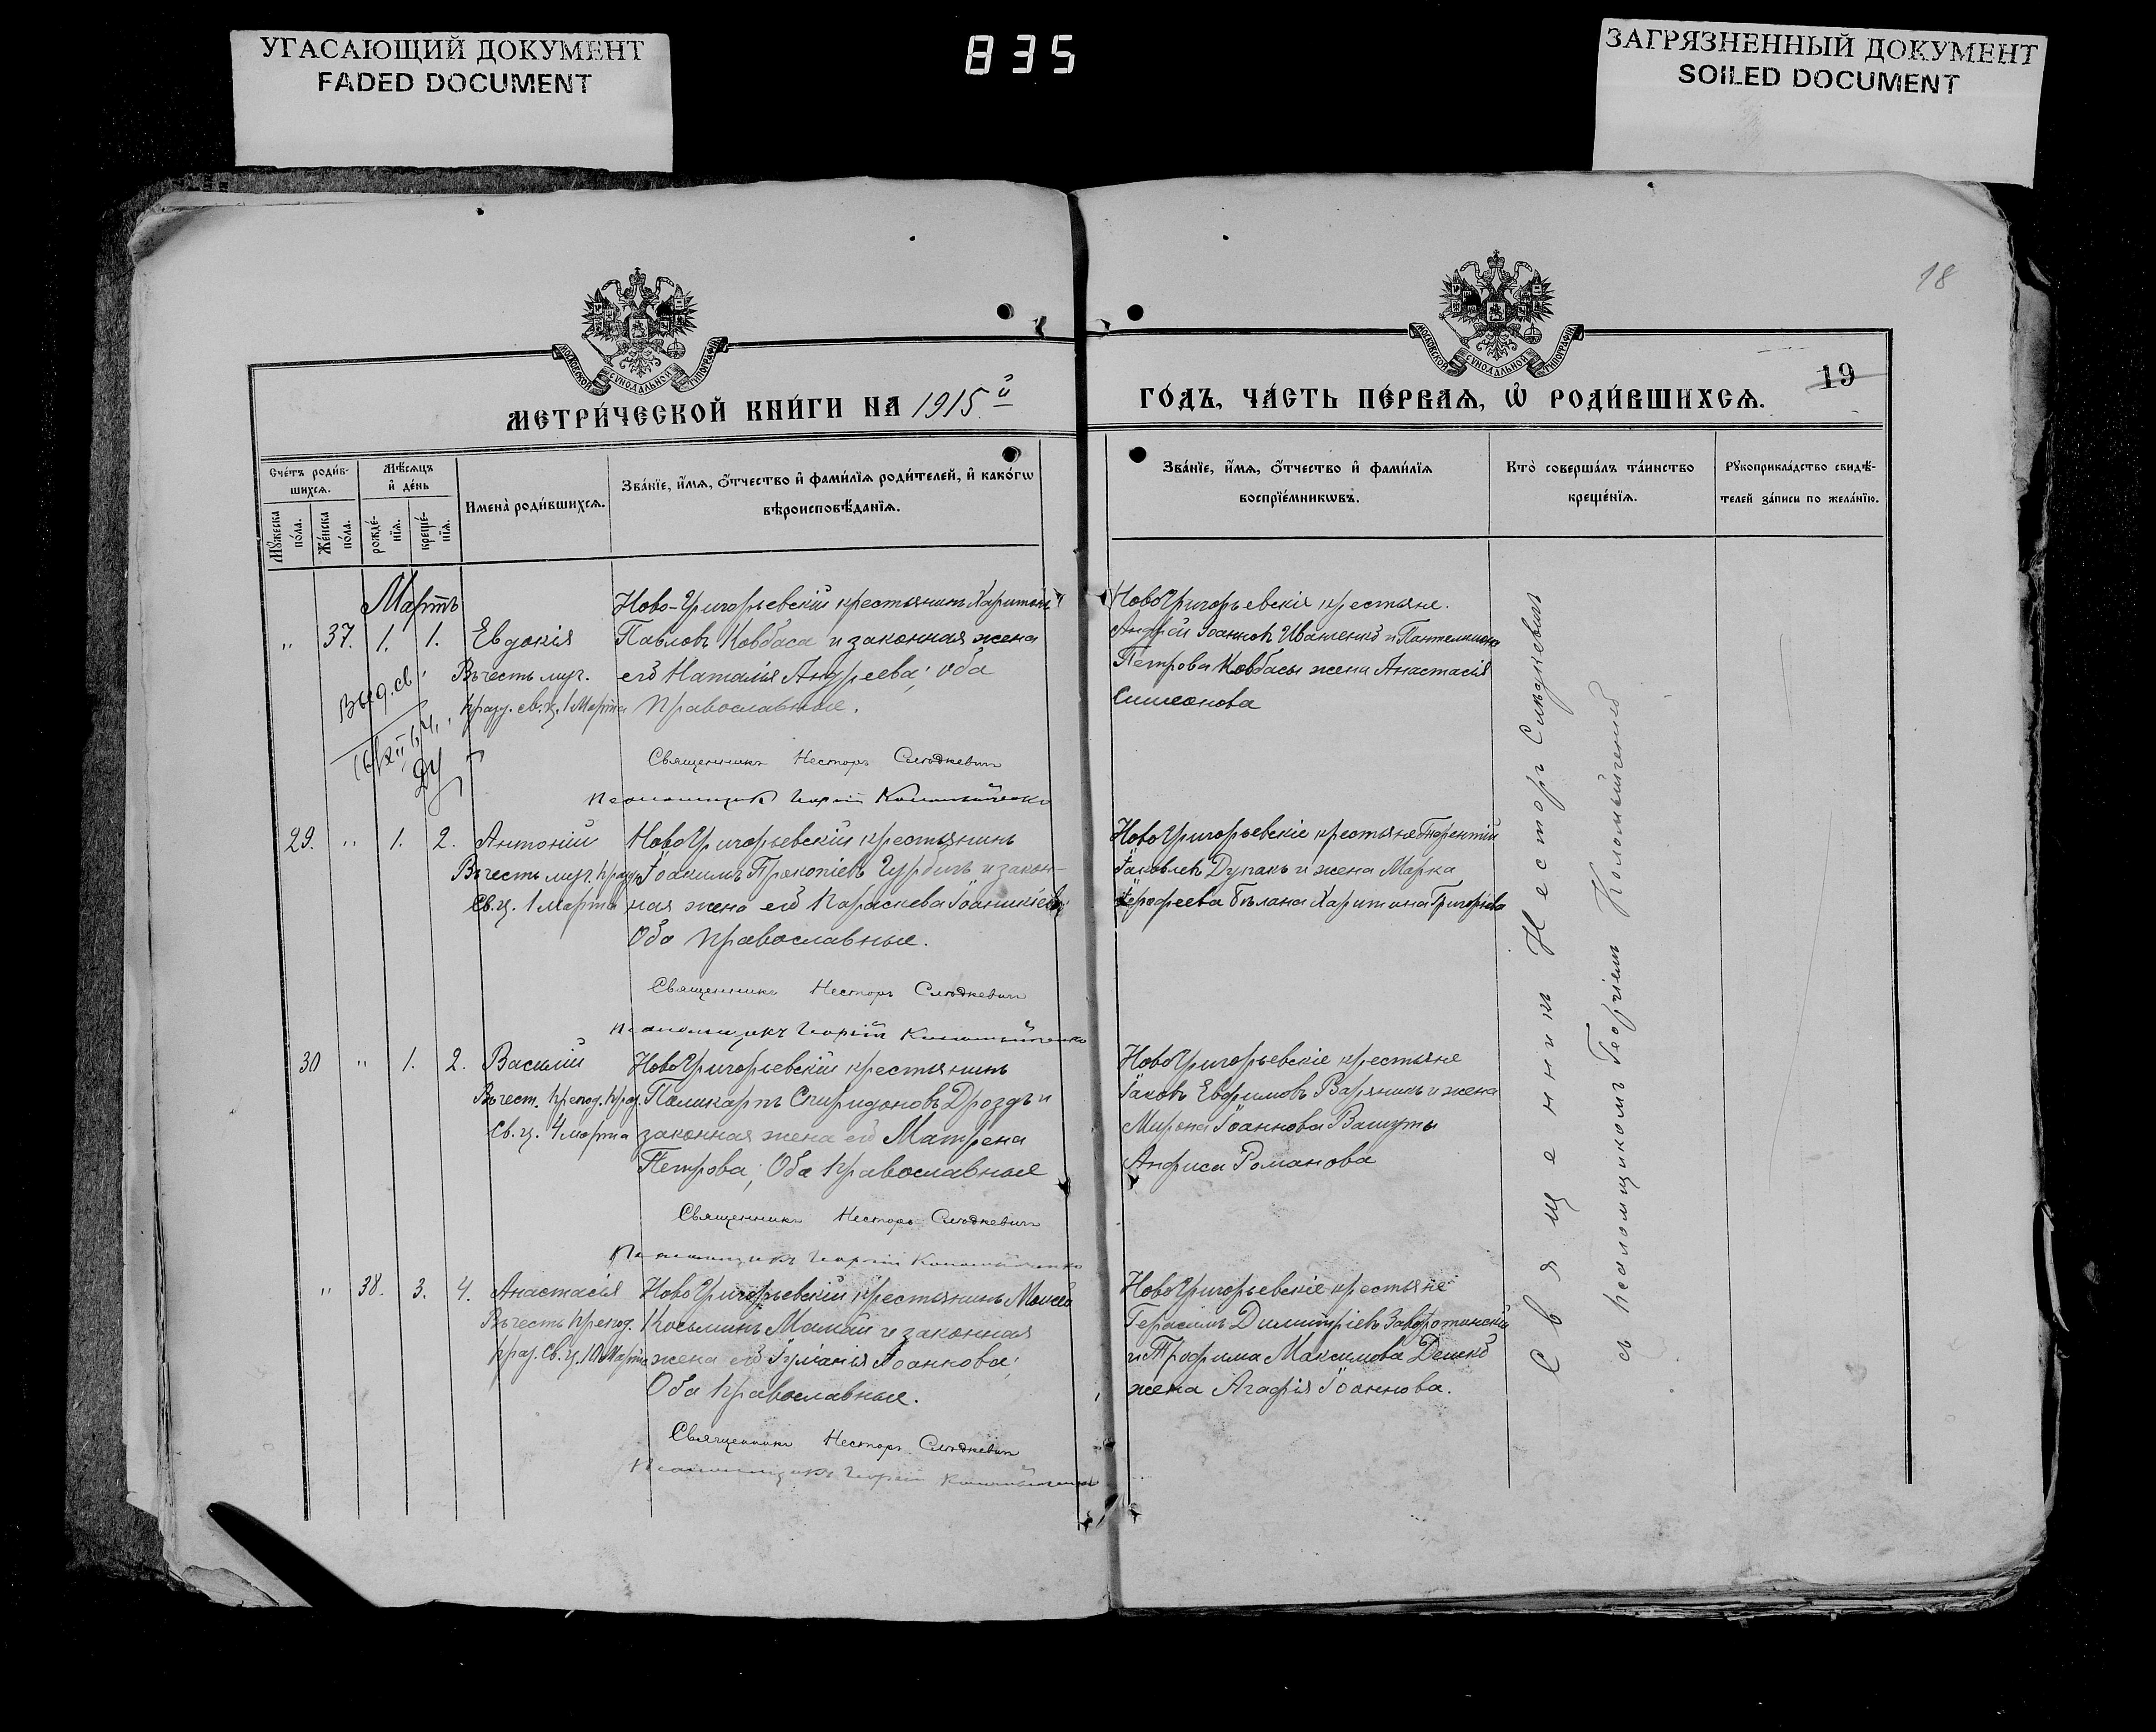 УГАСАЮЩИЙ ДОКУМЕНТ
FADED DOCUMENT
835
ЗАГРЯЗНЕННЫЙ ДОКУМЕНТ
SOILED DOCUMENT
18
МОСКОВСКОЙ СѴНОДАЛЬНОЙ ТИПОГРАФІИ
МОСКОВСКОЙ СѴНОДАЛЬНОЙ ТИПОГРАФІИ
19
МЕТРИ́ЧЕСКОЙ КНИ́ГИ НА 1915й
ГО́ДЪ, ЧА́СТЬ ПЕ́РВАѦ, Ѽ РОДИ́ВШИХСѦ.
Сче́тъ роди́в-
шихсѧ.
Мꙋ́жеска
по́ла.
Же́нска
по́ла.
Мѣ́сѧцъ
и҆ де́нь
рожде́-
нїѧ.
креще́-
нїѧ.
Имена̀ роди́вшихсѧ.
Зва́нїе, и҆́мѧ, ѻ҆́тчество и҆ фами́лїѧ роди́телей, и҆ како́гѡ
вѣроисповѣ́данїѧ.
Зва́нїе, и҆́мѧ, ѻ҆́тчество и҆ фами́лїѧ
воспрїе́мникѡвъ.
Кто̀ соверша́лъ та́инство
креще́нїѧ.
Рꙋкоприкла́дство свидѣ́-
телей за́писи по жела́нїю.
Мартъ
" 37. 1. 1. Евдокія
Въ честь муч.
празд. св. ц. 1 Марта
Выд. св.
Ново-Григорьевскій крестьянинъ Харитонъ
Павловъ Ковбаса и законная жена
его Наталія Андреева; оба
православные.
Священникъ Несторъ Слюдкевич
Псаломщикъ Георгій Коломыйченко
НовоГригорьевскія крестьяне.
Андрей Іоанновъ Иваненко и Пантелимона
Петрова Ковбасы жена Анастасія
Симеонова
29. " 1. 2. Антоній
Въ честь муч. празд.
Св. ц. 1 марта
НовоГригорьевскій крестьянинъ
Іоакимъ Прокопіевъ и закон-
ная жена его Параскева Іоанникіева;
Оба православные.
Священникъ Несторъ Слюдкевич
Псаломщикъ Георгій Коломыйченко
НовоГригорьевскіе крестьяне Терентій
Іаковлевъ Дупакъ и жена Марка
Іерофеева Бѣлана Харитина Григорьева
30 " 1. 2. Василій
Въ чест. препод. празд.
Св. ц. 4 марта
НовоГригорьевскій крестьянинъ
Поликарпъ Спиридоновъ Дроздъ и
законная жена его Матрена
Петрова; Оба православные
Священникъ Несторъ Слюдкевич
Псаломщикъ Георгій Коломыйченко
НовоГригорьевскіе крестьяне
Іаковъ Евфимовъ Варяникъ и жена
Мирона Іоаннова Вашуты
Анфиса Романова
" 38. 3. 4. Анастасія
Въ честь препод.
праз. Св. ц. 10 Марта
НовоГригорьевскій крестьянинъ Моисей
Косьминъ Мамай и законная
жена его Іуліанія Іоаннова;
Оба православные.
Священникъ Несторъ Слюдкевич
Псаломщикъ Георгій Коломыйченко
НовоГригорьевскіе крестьяне
Герасимъ Димитріевъ Заворотинскій
и Трофима Максимова Дешко
жена Агафія Іоаннова.
Священник Нестор Слюдкевичъ
съ псаломщикомъ Георгіемъ Коломыйченко